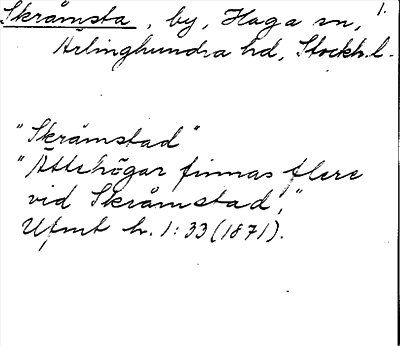 Skråmsta, by, Haga sn, 1.
Ärlinghundra hd, Stockh.l.
"Skråmstad"
"Ättehögar finnas flere
vid Skråmstad,"
Ufmt h. 1:33 (1871).